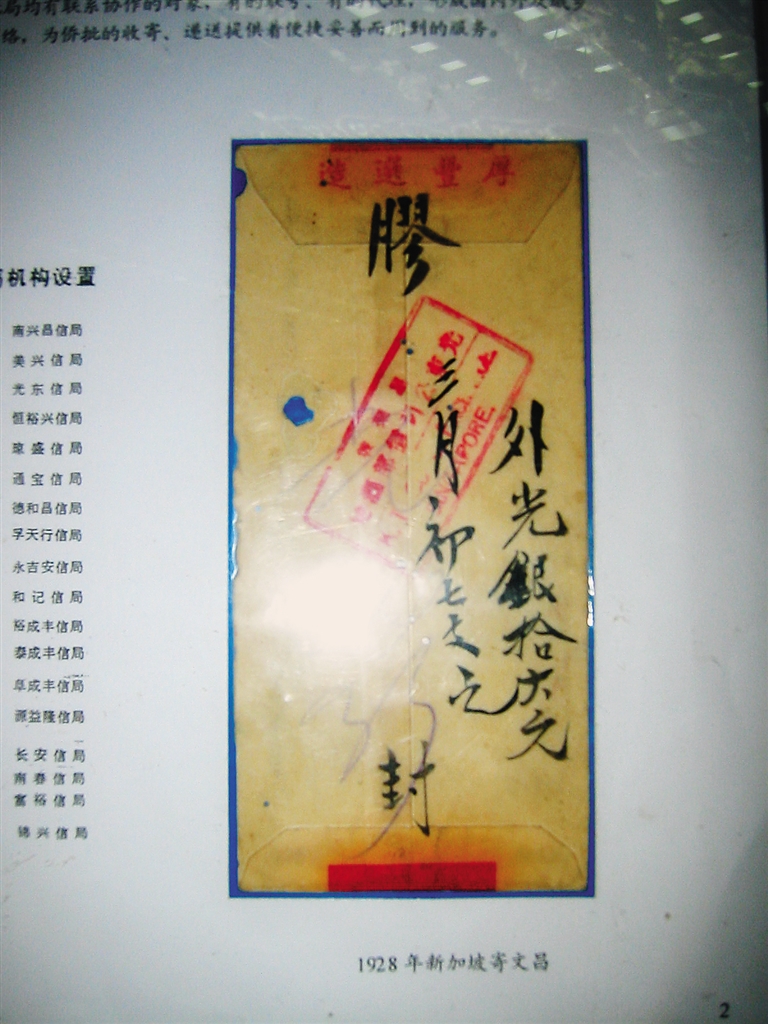 局均有联系协作的对象，有的联号、有的代理，形成国内外及城乡
络，为侨批的收寄、递送提供着便捷妥善而周到的服务。
机构设置
南兴昌信局
美兴信局
光东信局
恒裕兴信局
琼盛信局
通宝信局
德和昌信局
孚天行信局
永吉安信局
和记信局
裕成丰信局
泰成丰信局
阜成丰信局
源益隆信局
长安信局
南春信局
富裕信局
锦兴信局
厚豐選造
膠
外光銀拾六元
三月初七
封
PORE.
1928年新加坡寄文昌
2